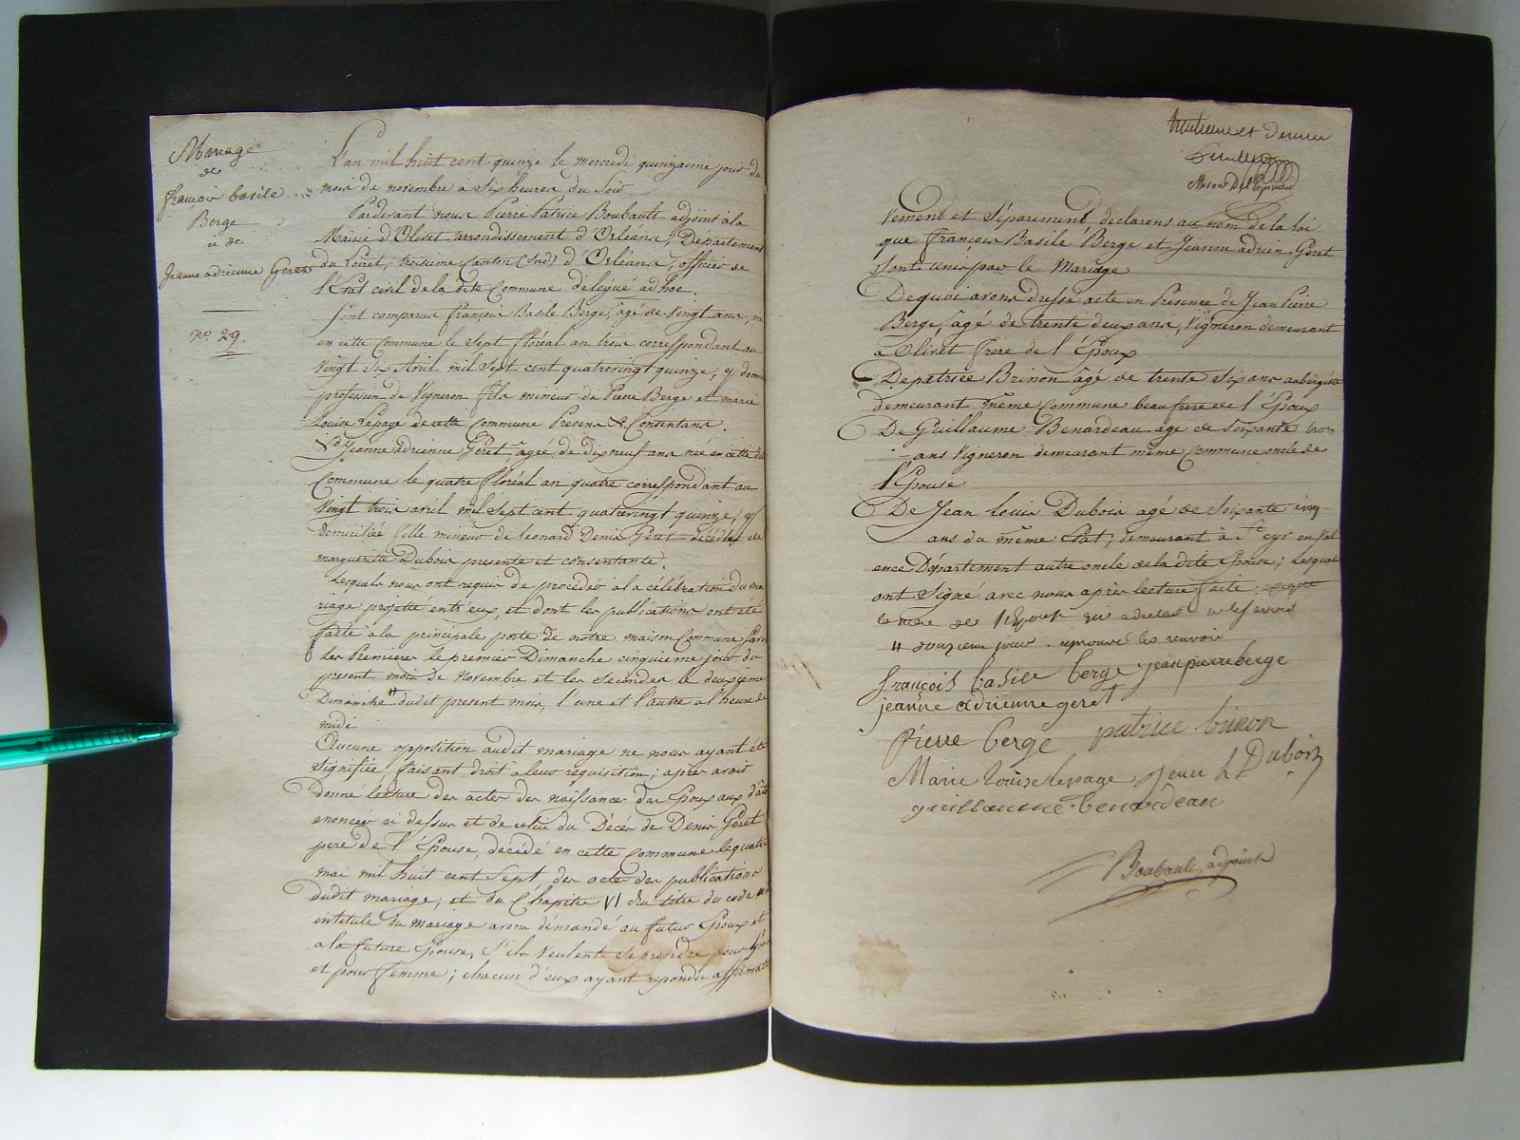 Mariage
de
françois basile
Berge
& de
Jeanne adrienne Geret
No. 29.
L'an mil huit cent quinze le mercredi quinzieme jour du
mois de novembre à Six heures du Soir
Pardevant nous Pierre Patrice Boubault adjoint à la
Mairie d'Olivet arrondissement d'Orléans, Departement
du Loiret, troisieme Canton (Sud) d'Orléans, officier de
l'Etat civil de la dite Commune délégué ad hoc.
Sont comparus françois Basile Berge, âgé de Vingt ans, né
en cette commune le Sept floréal an trois correspondant au
Vingt Six Avril mil Sept cent quatrevingt quinze, y dem
profession de Vigneron fils mineur de Pierre Berge et marie
Louise Lepage de cette Commune Presens & Consentans.
Et Jeanne adrienne Géret agée de Dix neuf ans née en cette dite
Commune le quatre floréal an quatre correspondant au
Vingt trois avril mil Sept cent quatrevingt quinze, y
domiciliée fille mineure de leonard Denis Géret décédé et de
marguerite Dubois presente et consentante.
Lesquels nous ont requis de proceder à la célébration du ma
riage projetté entr'eux, et dont les publications ont été
faite à la principale porte de notre maison Commune savoir
les Premieres le premier Dimanche cinquieme jour du
present mois de Novembre et les Secondes le deuxieme
Dimanche # dudit present mois, l'une et l'autre à l'heure de
midi
Aucune opposition audit mariage ne nous ayant été
Signifiée, faisant droit à leur requisition; après avoir
donné lecture des actes des naissances des Epoux aux dates
enoncés ci dessus et de celui du Décès de Denis Géret
pere de l'Epouse, décédé en cette Commune le quatre
mai mil huit cent Sept des actes des publications
dudit mariage, et du Chapitre VI du titre du code
intitulé du mariage avons démandé au futur Epoux et
a la future Epouse, S'ils veulent Se prendre pour
et pour femme; chacun d'eux ayant repondu affirmati
huitieme et dernier
feuillet
vement et Séparement, declarons au nom de la loi
que françois Basile Berge et Jeanne adrien Géret
Sont unis par le Mariage
De quoi avons dressé acte en Presence de Jean Pierre
Berge, âgé de trente deux ans, Vigneron demeurant
à Olivet frere de l'Epoux
De patrice Brinon âgé de trente Six ans aubergiste
demeurant même commune beau frere de l'Epoux
De Guillaume Benardeau age de Soixante trois
ans Vigneron demeurant même Commune oncle de
l'Epouse
De Jean louis Dubois agé de Soixante cinq
ans du même Etat, demeurant à St cyr en Val
ence Département autre oncle de la dite Epouse; Lesquels
ont Signé avec nous après lecture faite
la mere de l'Epouse qui a declaré ne le savoir
# douzieme jour. approuvé les renvois
françois basile berge jean pierre berge
jeanne adrienne geret
Pierre bergé patrice brinon
Marie Louise lepage Jean L Dubois
guillaume benardeau
Boubault, adjoint